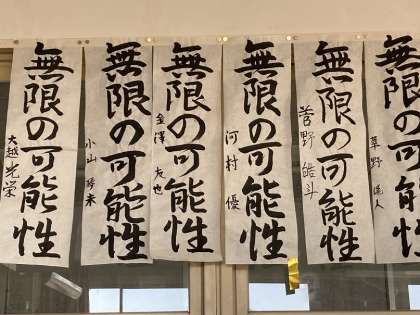 無限の可能性
草野
無限の可能性
菅野 皓斗
無限の可能性
河村 優
無限の可能性
金澤 友也
無限の可能性
小山
無限の可能性
大越光栄